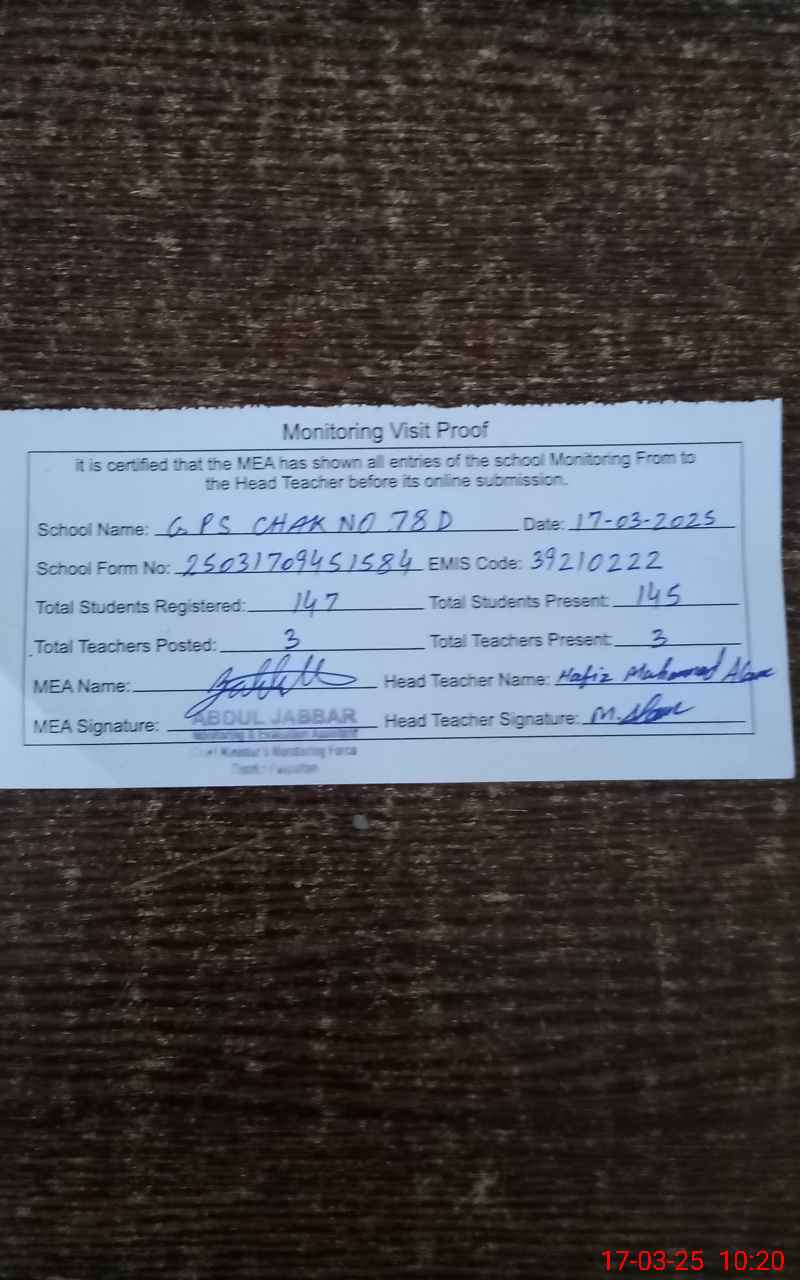 Monitoring Visit Proof
it is certified that the MEA has shown all entries of the school Monitoring From to
the Head Teacher before its online submission.
School Name: G PS CHAK NO 78 D Date: 17-03-2025
School Form No: 25031709451584 EMIS Code: 39210222
Total Students Registered: 147 Total Students Present: 145
Total Teachers Posted: 3 Total Teachers Present: 3
MEA Name: Head Teacher Name: Hafiz Muhammad
MEA Signature: ABDUL JABBAR Head Teacher Signature: M.
Monitoring & Evaluation Assistant
Chief Minister's Monitoring Force
17-03-25 10:20